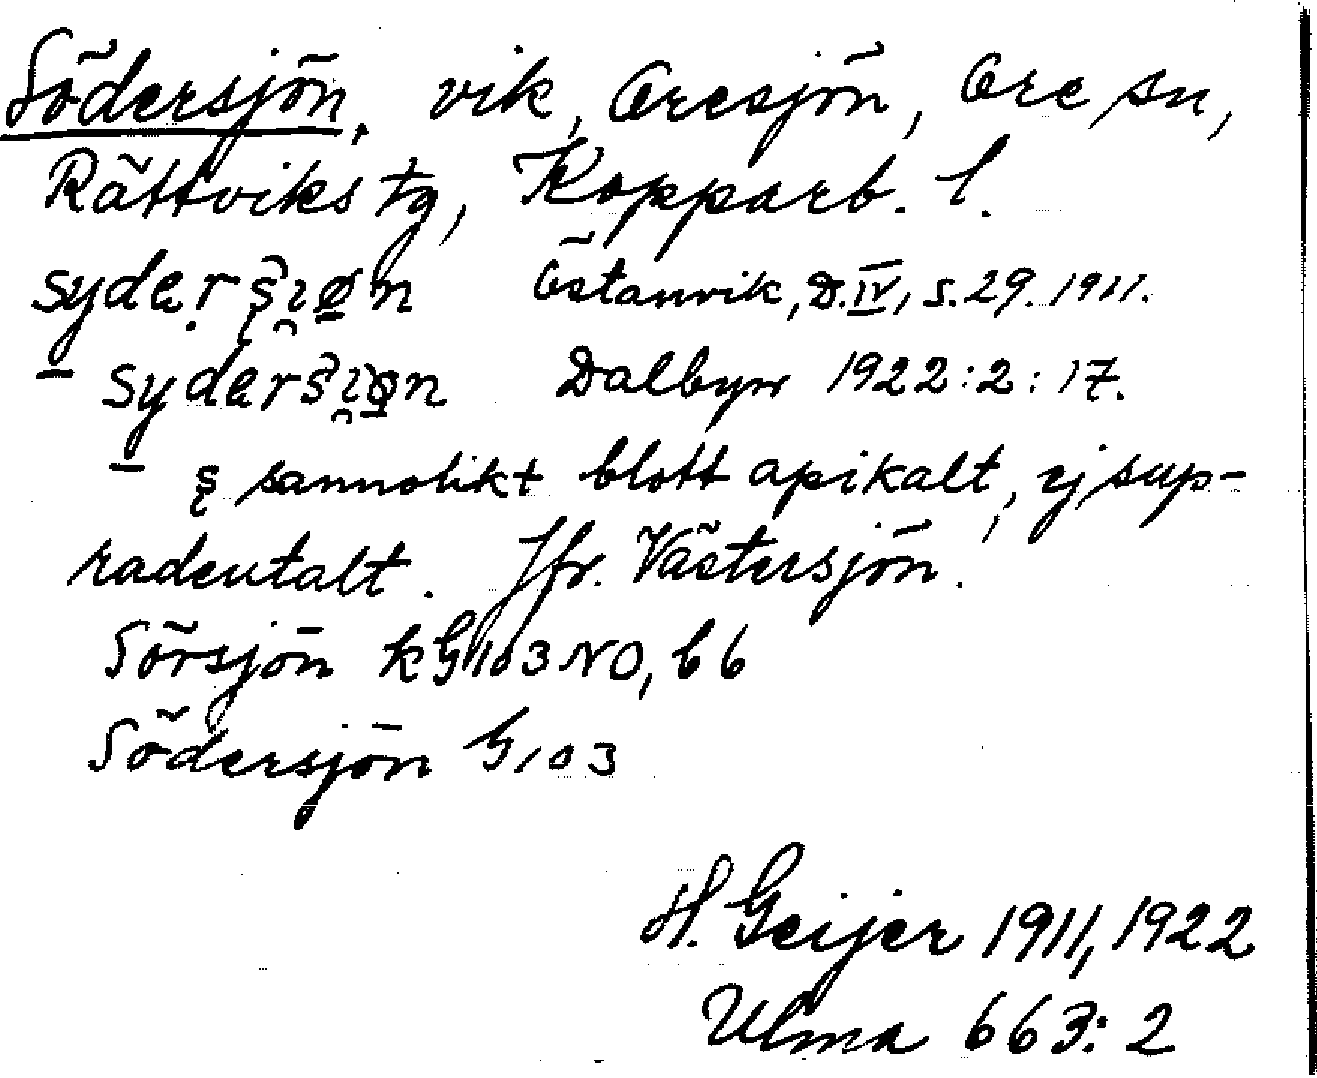 Södersjön, vik, Oresjön, Ore sn,
Rättviks tg, Kopparb. l.
syde̤rşı̯øn Östanvik, D.IV, s.29. 1911.
– sydersı̯øn Dalbyn 1922:2:17.
– ş sannolikt blott apikalt, ej sup-
radentalt. Jfr. Västersjön.
Sörsjön kG103NO, b6
Södersjön G103
H. Geijer 1911, 1922
Ulma 663:2